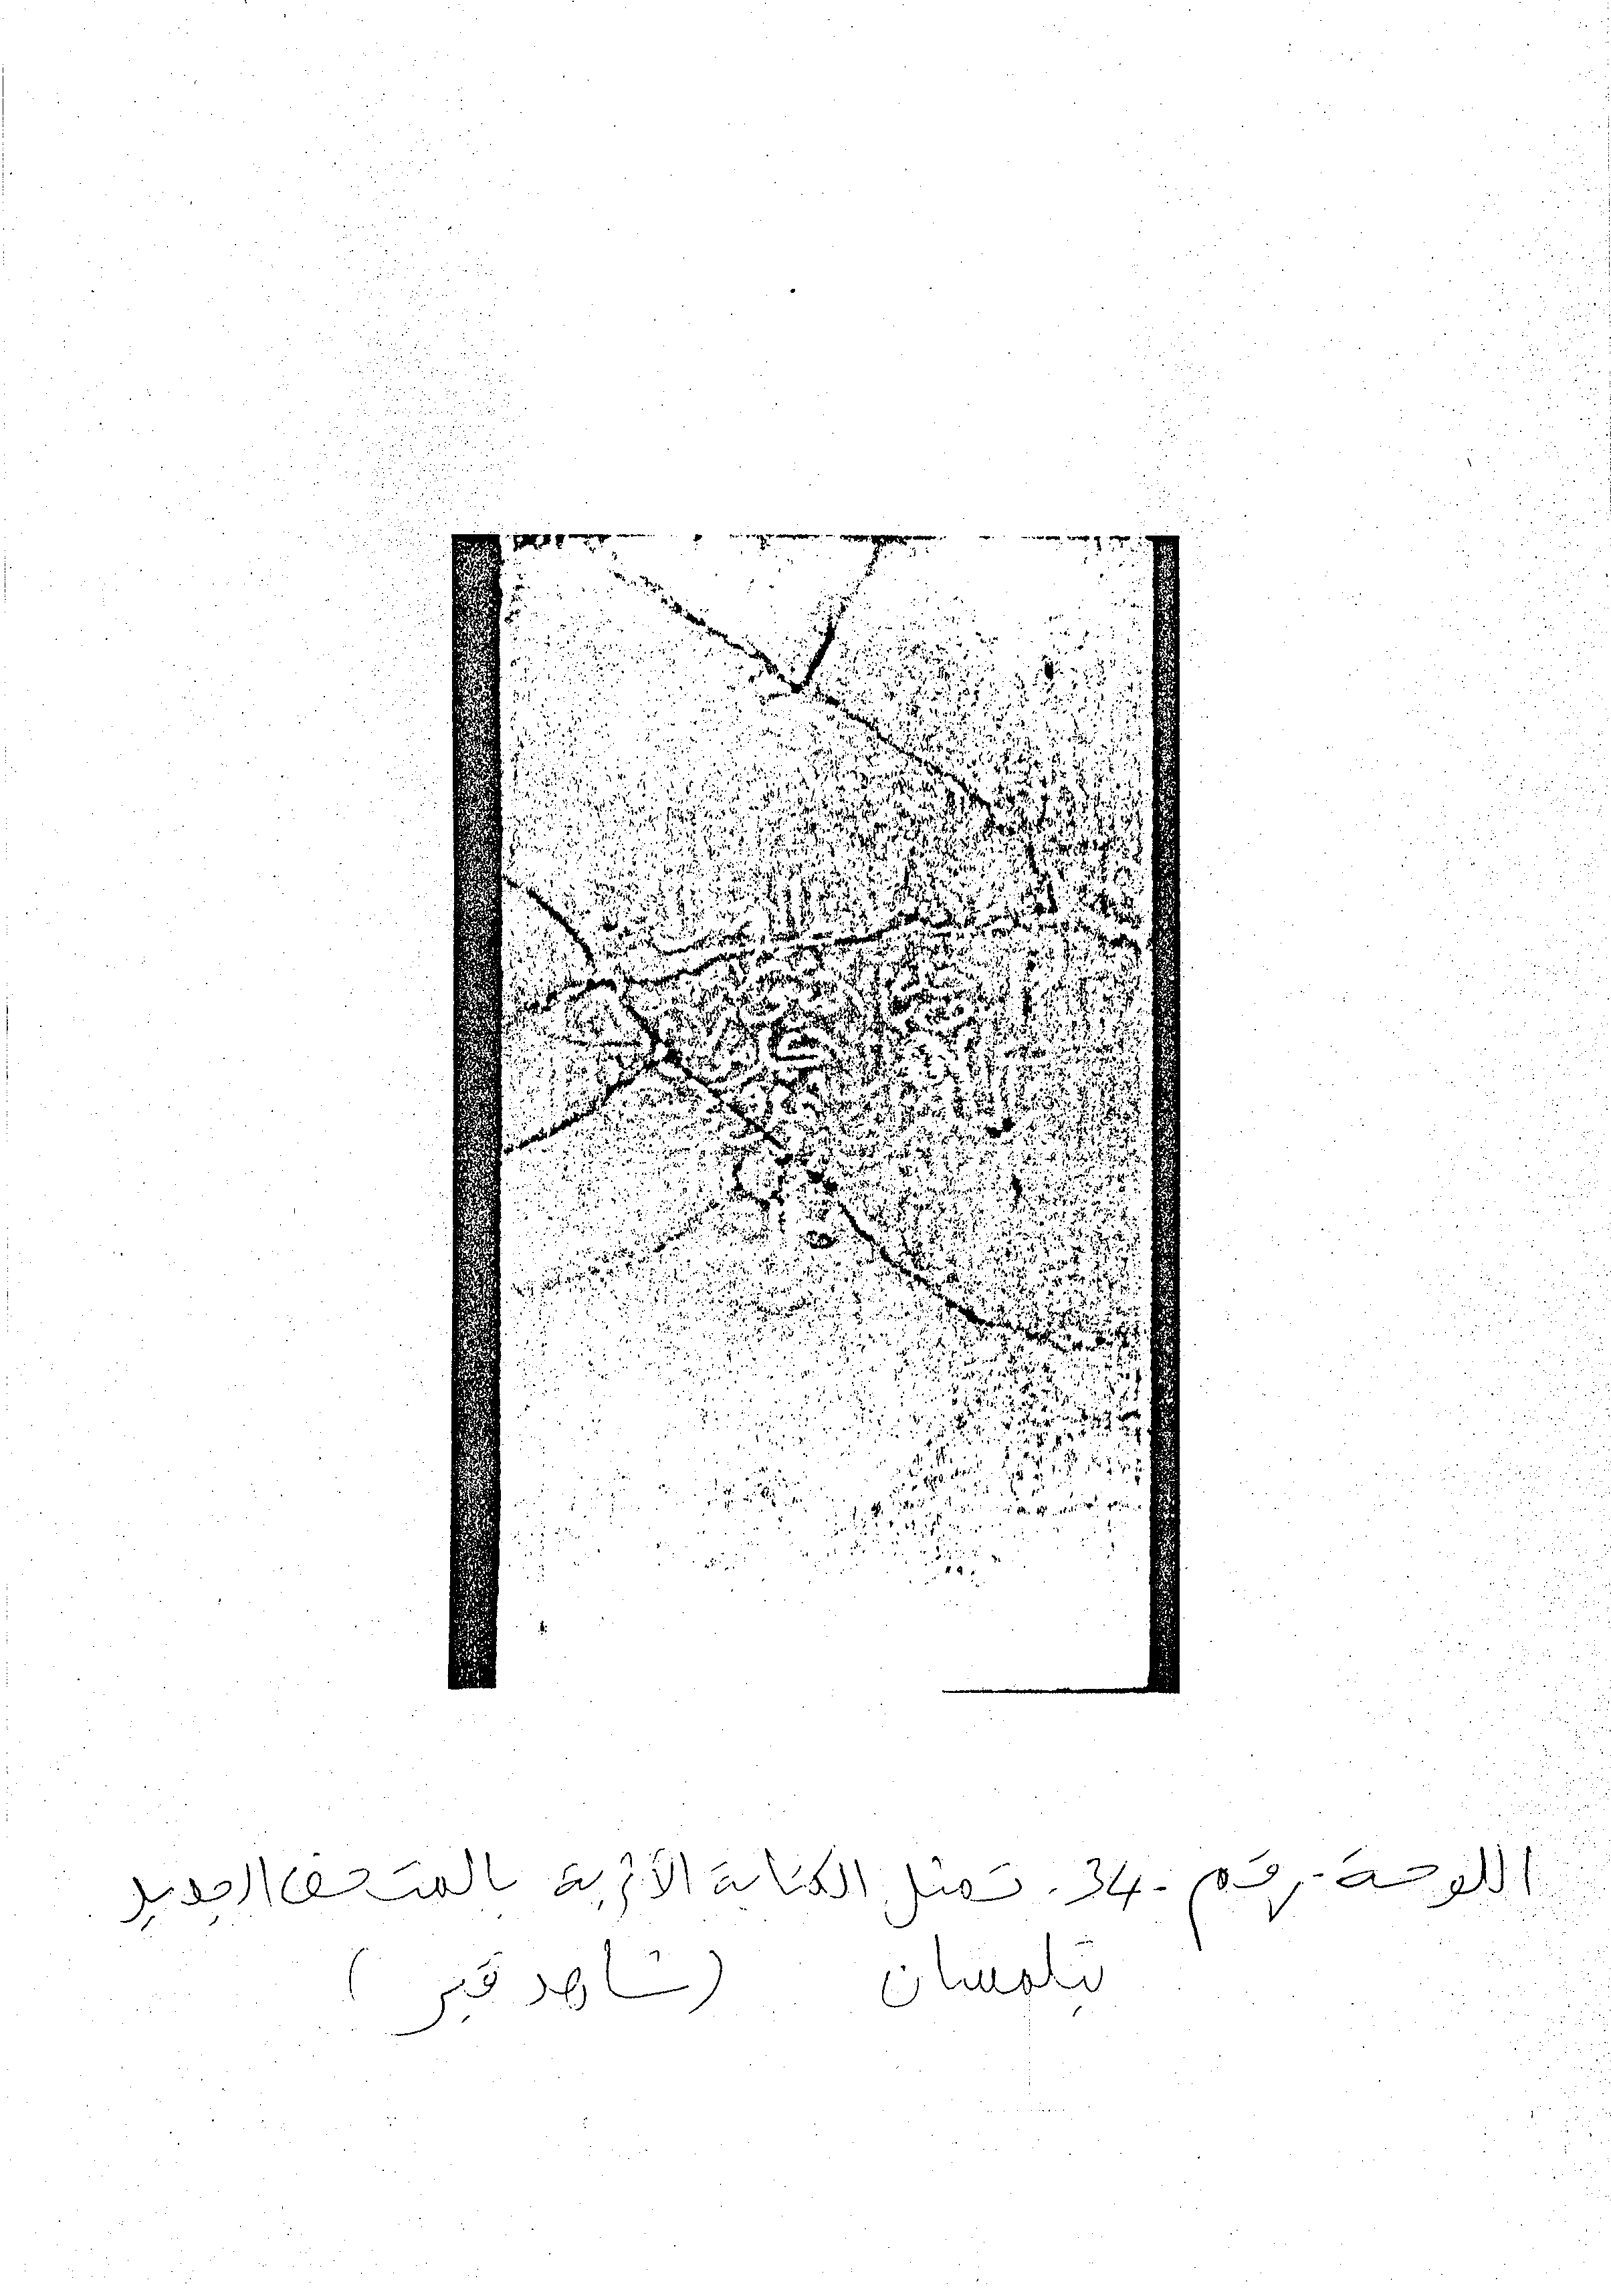 اللوحة رقم -34- تمثل الكتابة الأثرية بالمتحف الجديد
بتلمسان (شاهد قبر)